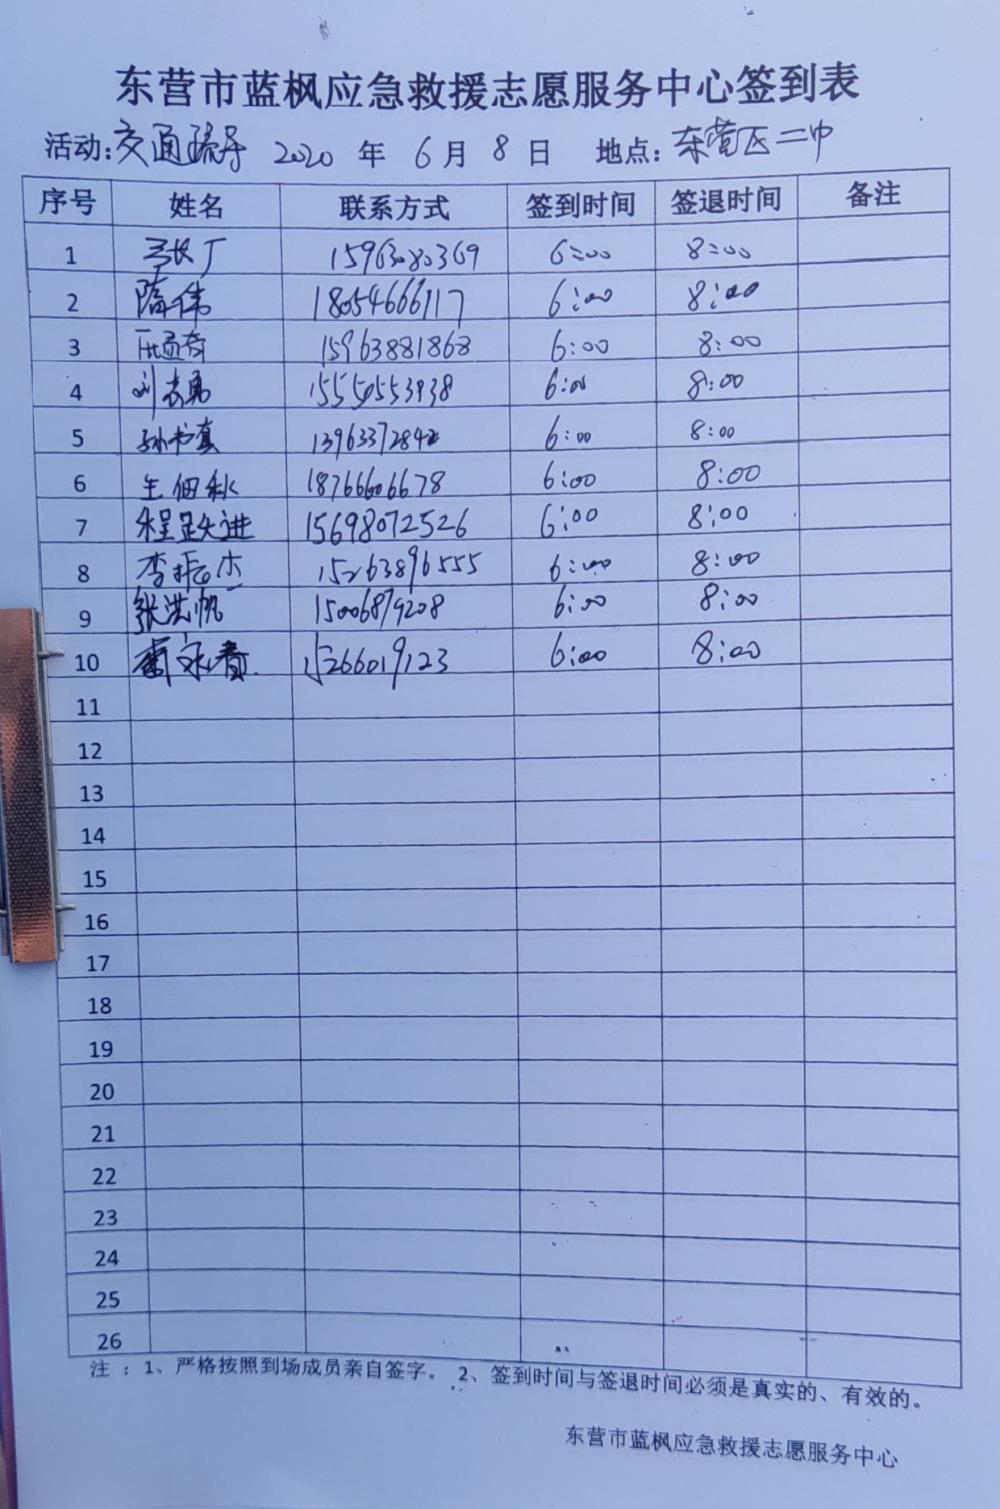 东营市蓝枫应急救援志愿服务中心签到表
活动:交通疏导 2020 年 6 月 8 日 地点:东营区二中
序号 姓名 联系方式 签到时间 签退时间 备注
1 15963080369 6:00 8:00
2 隋伟 18054666117 6:00 8:00
3 15963881868 6:00 8:00
4 刘志勇 15550553938 6:00 8:00
5 孙书真 6:00 8:00
6 王佃秋 18766606678 6:00 8:00
7 程跃进 15698072526 6:00 8:00
8 李振杰 15263896555 6:00 8:00
9 张洪帆 15006879208 6:00 8:00
10 15266019123 6:00 8:00
11
12
13
14
15
16
17
18
19
20
21
22
23
24
25
26
注：1、严格按照到场成员亲自签字。 2、签到时间与签退时间必须是真实的、有效的。
东营市蓝枫应急救援志愿服务中心